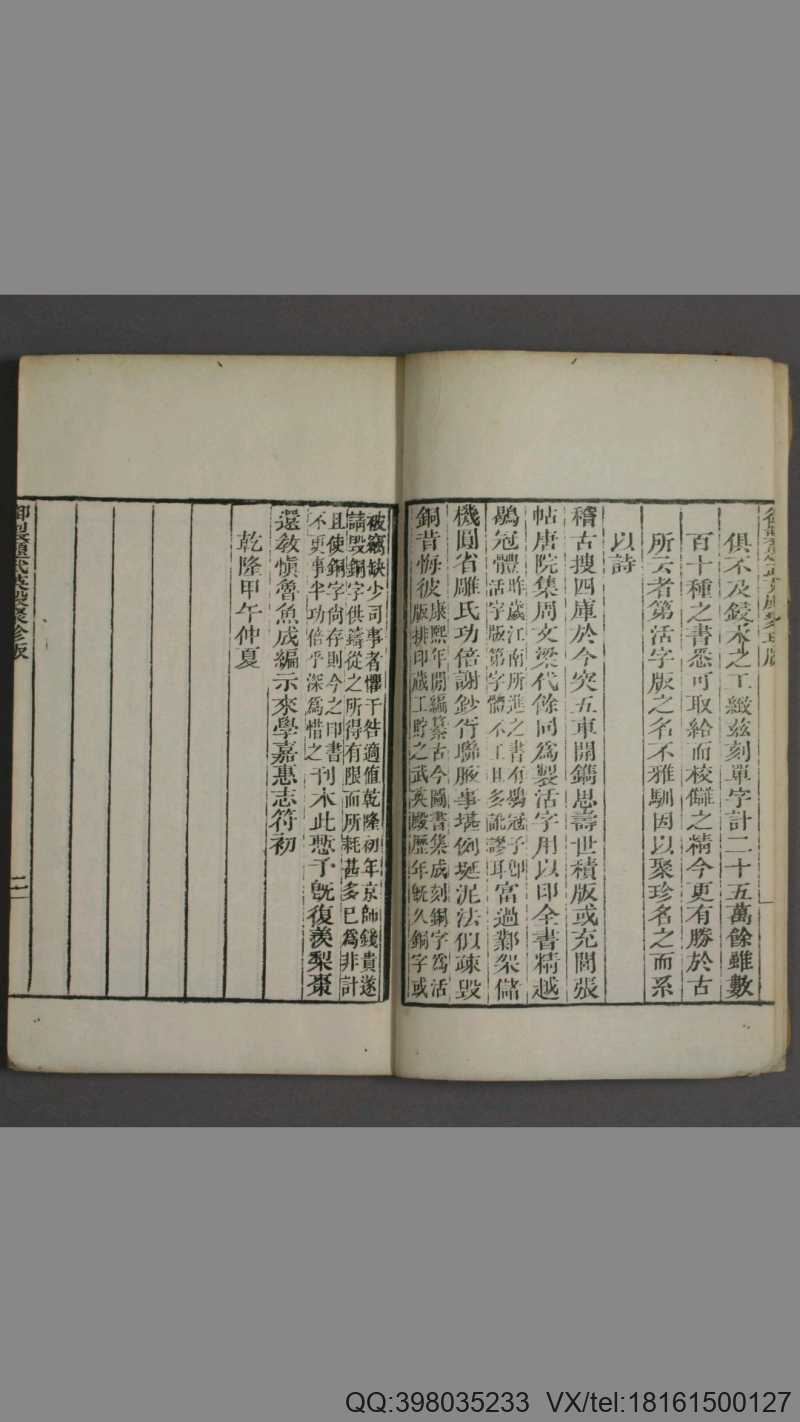 俱不及鋟木之工緻茲刻單字計二十五萬餘雖數
百十種之書悉可取給而校讎之精今更有勝於古
所云者第活字版之名不雅馴因以聚珍名之而系
以詩
稽古搜四庫於今突五車開鐫思壽世積版或充閭張
帖唐院集周文梁代餘同為製活字用以印全書精越
鶡冠體
昨歲江南所進之書有鶡冠子即
活字版第字體不工且多訛謬耳
富過鄴架儲
機圓省雕氏功倍謝鈔胥聯腋事堪例埏泥法似疎毀
銅昔悔彼
康熙年間編纂古今圖書集成刻銅字為活
版排印蕆工貯之武英殿歷年既久銅字或
被竊缺少司事者懼干咎適值乾隆初年京師錢貴遂
請毀銅字供鑄從之所得有限而所耗甚多已為非計
且使銅字尚存則今之印書
不更事半功倍乎深為惜之
刊木此慙予既復羨梨棗
還教慎魯魚成編示來學嘉惠志符初
乾隆甲午仲夏
御製題武英殿聚珍版
二
QQ:398035233 VX/tel:18161500127